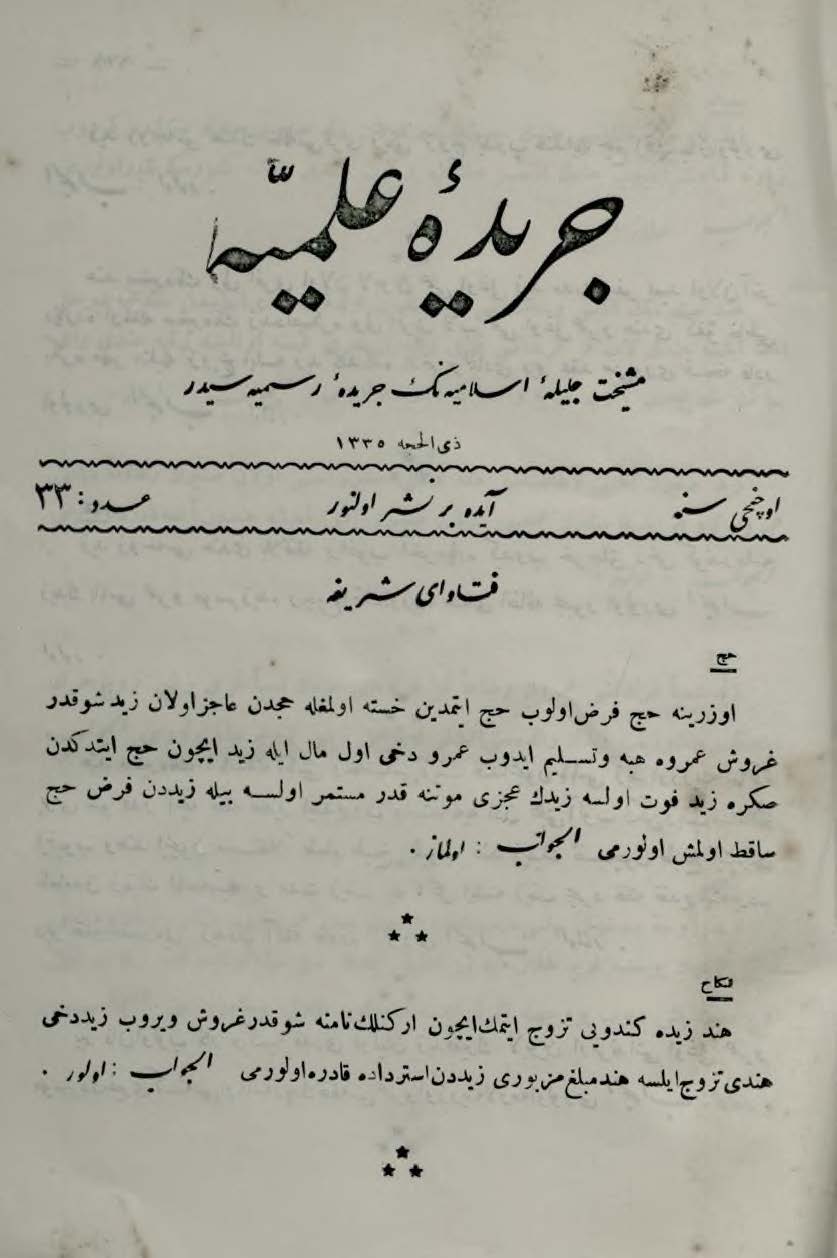 جريدۀ علميه
مشيخت جليلۀ اسلاميه نك جريدۀ رسميه سيدر
ذى الحجه ١٣٣٥
اوچنجى سنه
آيده بر نشر اولنور
عدد : ٣٣
فتاواى شريفه
حج
اوزرينه حج فرض اولوب حج ايتمدين خسته اولمغله حجدن عاجز اولان زيد شوقدر
غروش عمروه هبه وتسليم ايدوب عمرو دخى اول مال ايله زيد ايچون حج ايتدكدن
صكره زيد فوت اولسه زيدك عجزى موتنه قدر مستمر اولسه بيله زيددن فرض حج
ساقط اولمش اولورمى الجواب : اولماز .
نكاح
هند زيده كندويى تزوج ايتمك ايچون اركنلك نامنه شوقدر غروش ويروب زيد دخى
هندى تزوج ايلسه هند مبلغ مزبورى زيددن استرداده قادره اولورمى الجواب : اولور .